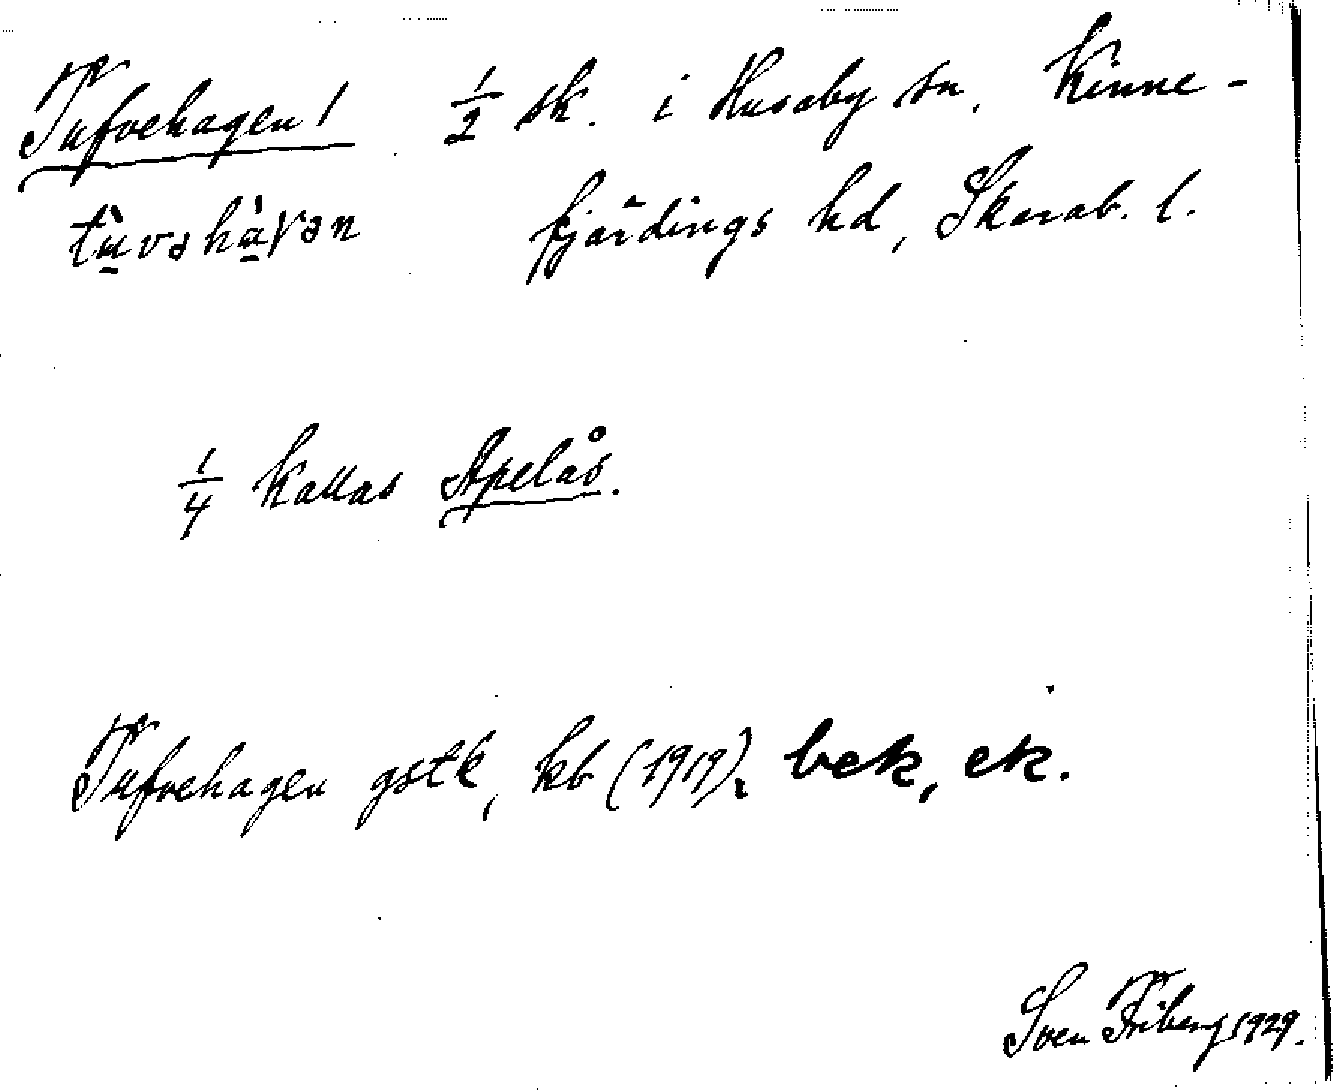 Tufvehagen! 1/2 sk. i Husaby sn, Kinne-
tù̲vəhà̲γən fjärdings hd, Skarab. l.
1/4 kallas Apelås.
Tufvehagen gstk, kb (1919), bek, ek.
Sven Friberg 1929.